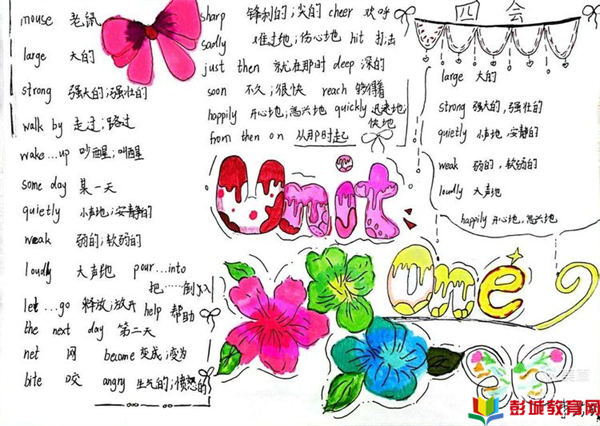 mouse 老鼠
large 大的
strong 强大的;强壮的
walk by 走过;路过
wake...up 吵醒;叫醒
some day 某一天
quietly 小声地;安静的
weak 弱的;软弱的
loudly 大声地 pour...into
把……倒入
let...go 释放;放开 help 帮助
the next day 第二天
net 网 become 变成;变为
bite 咬 angry 生气的;愤怒的
sharp 锋利的;尖的 cheer 欢呼
sadly 难过地;伤心地 hit 打;击
just then 就在那时 deep 深的
soon 不久;很快 reach 够得着
happily 开心地;高兴地 quickly 迅速地;
快地
from then on 从那时起
四会
large 大的
strong 强大的,强壮的
quietly 小声地,安静的
weak 弱的,软弱的
loudly 大声地
happily 开心地,高兴地
Unit
One
彭城教育网